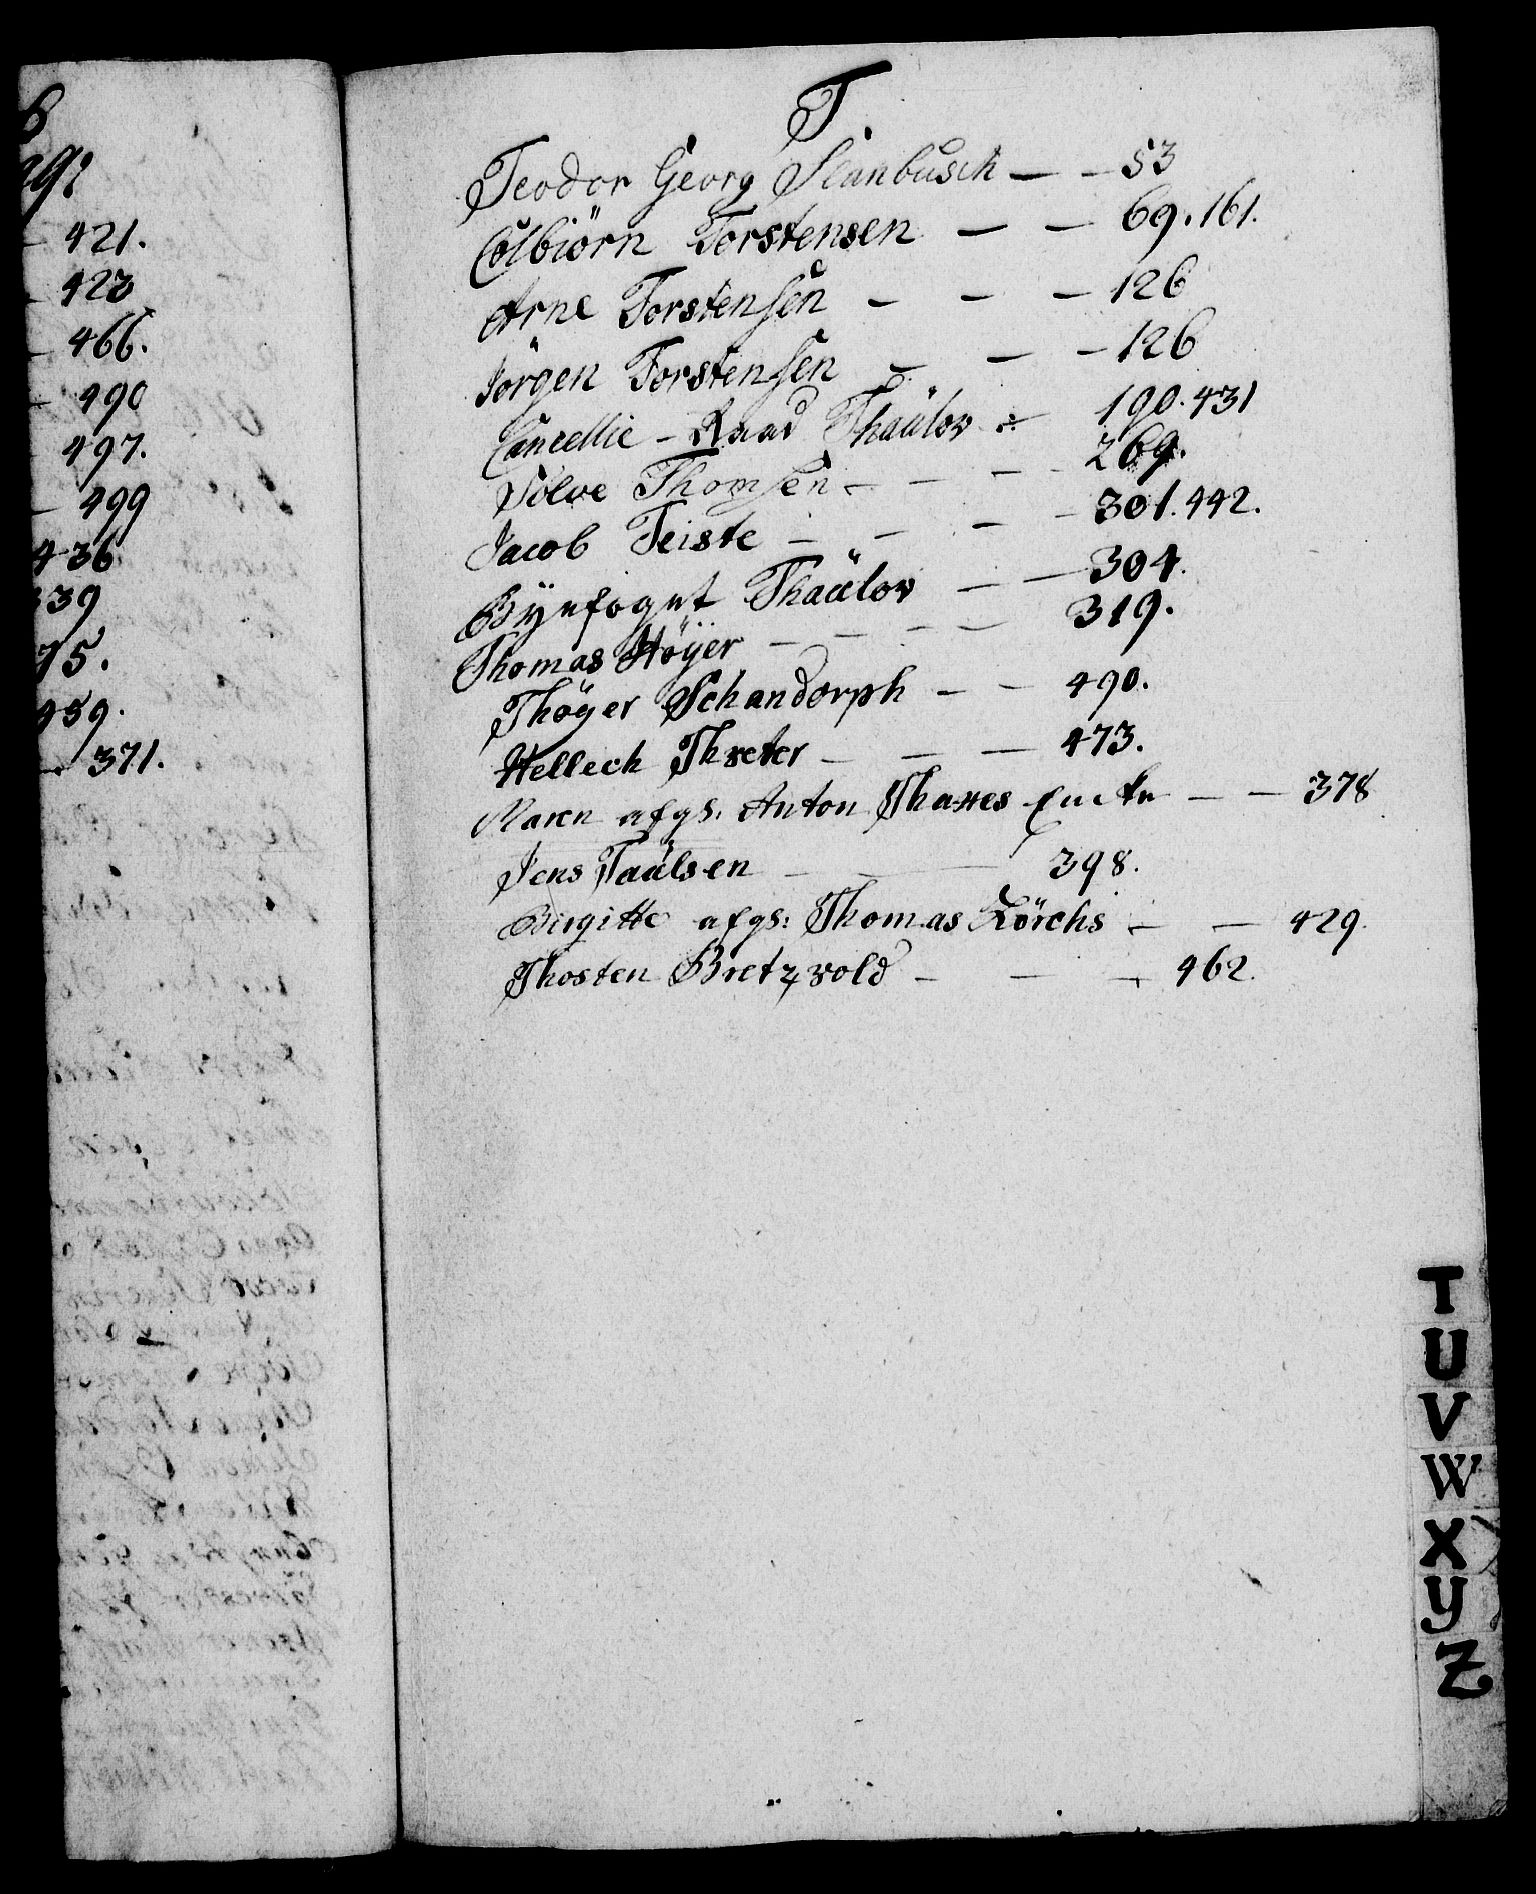 421.
423
466.
490
497.
499
436
39
75.
459.
371.
T
Teodor Georg Slanbusch — — 53
Colbiörn Torstensen — — 69. 161.
Arne Torstensen — — — 126
Jörgen Torstensen — — — 126
Cancellie - Raad Thaülov — 190. 431
Sölve Thomsen — — — 269.
Jacob Teiste — — — — 301. 442.
Byefogut Thaülov — — 304.
Thomas Höÿer — — — — 319.
Thöger Schandorph — — 490.
Helleck Threter — — — 473.
Maren afgs. Anton Enke — — 378
Jens Taülsen — — — 398.
Birgitte afgs: Thomas Lörchs — — 429.
Thosten Bretzvold — — — 462.
T
U
V
W
X
Y
Z